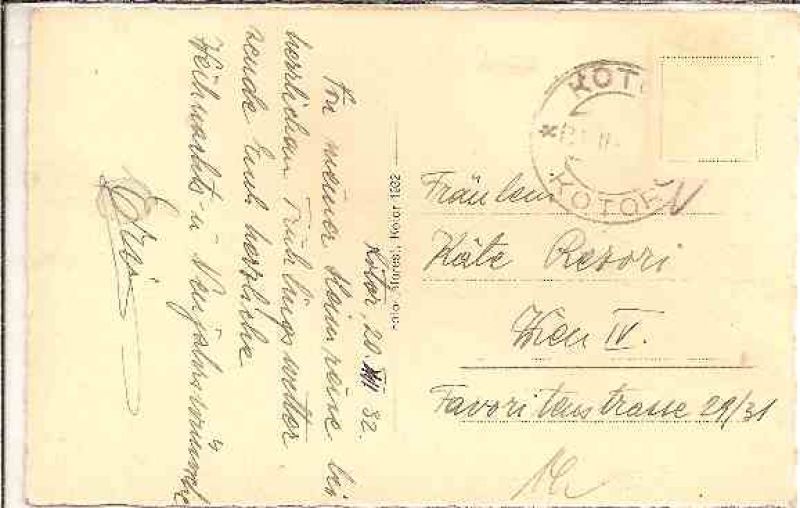 Kotor, 20. XII 32.
Von meiner Heimreise bei
herrlichem Frühlingswetter
sende Euch herzliche
Weihnachts u Neujahrswünsche
KOTOR
KOTOR
Fräulein
Käte
Wien IV.
Favoritenstrasse 29/31